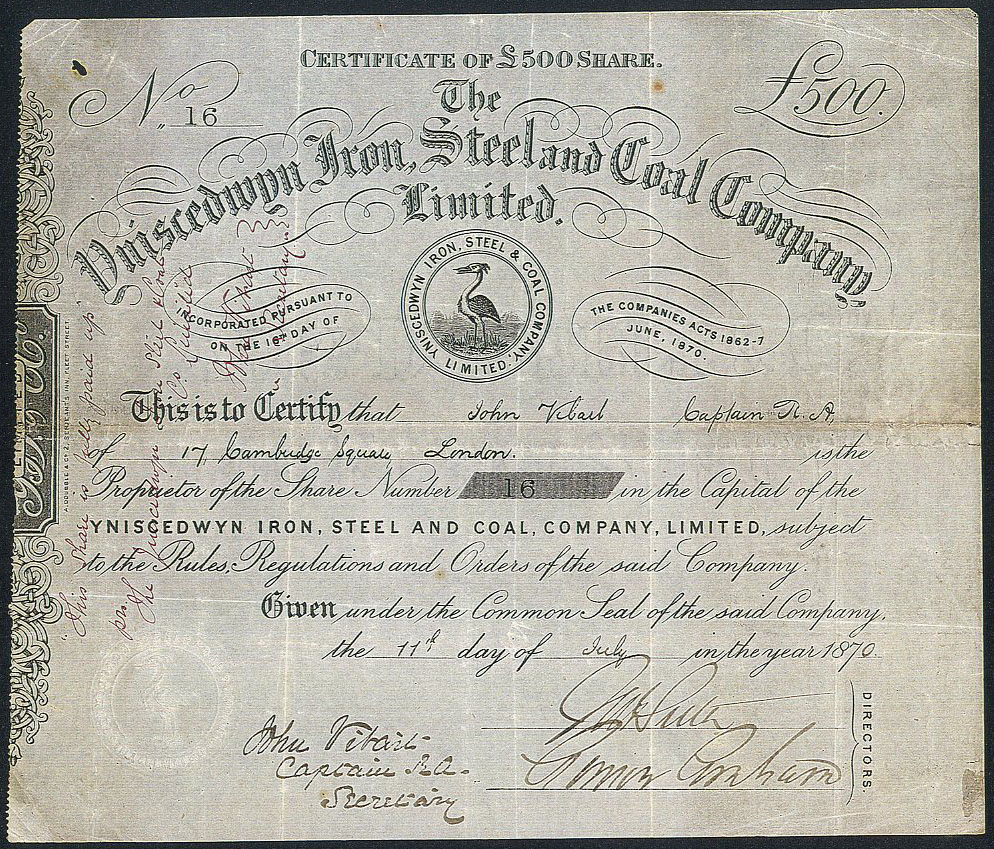 CERTIFICATE OF £500 SHARE.
No. 16
£500.
The
Yniscedwyn Iron, Steel and Coal Company
Limited.
INCORPORATED PURSUANT TO
ON THE 16th DAY OF
YNISCEDWYN IRON, STEEL & COAL COMPANY,
LIMITED.
THE COMPANIES ACTS 1862-7
JUNE, 1870.
This is to Certify that John Vibart Captain R.A,
of 17, Cambridge Square London. is the
Proprietor of the Share Number 16 in the Capital of the
YNISCEDWYN IRON, STEEL AND COAL, COMPANY, LIMITED, subject
to the Rules, Regulations and Orders of the said Company.
Given under the Common Seal of the said Company,
the 11th day of July in the year 1870.
John Vibart
Captain R.A.
Secretary
Graham
DIRECTORS.
"This Share is fully paid up"
pro. The Yniscedwyn Iron Steel & Coal
Co Limited
John Vibart
Secretary
LIMITED